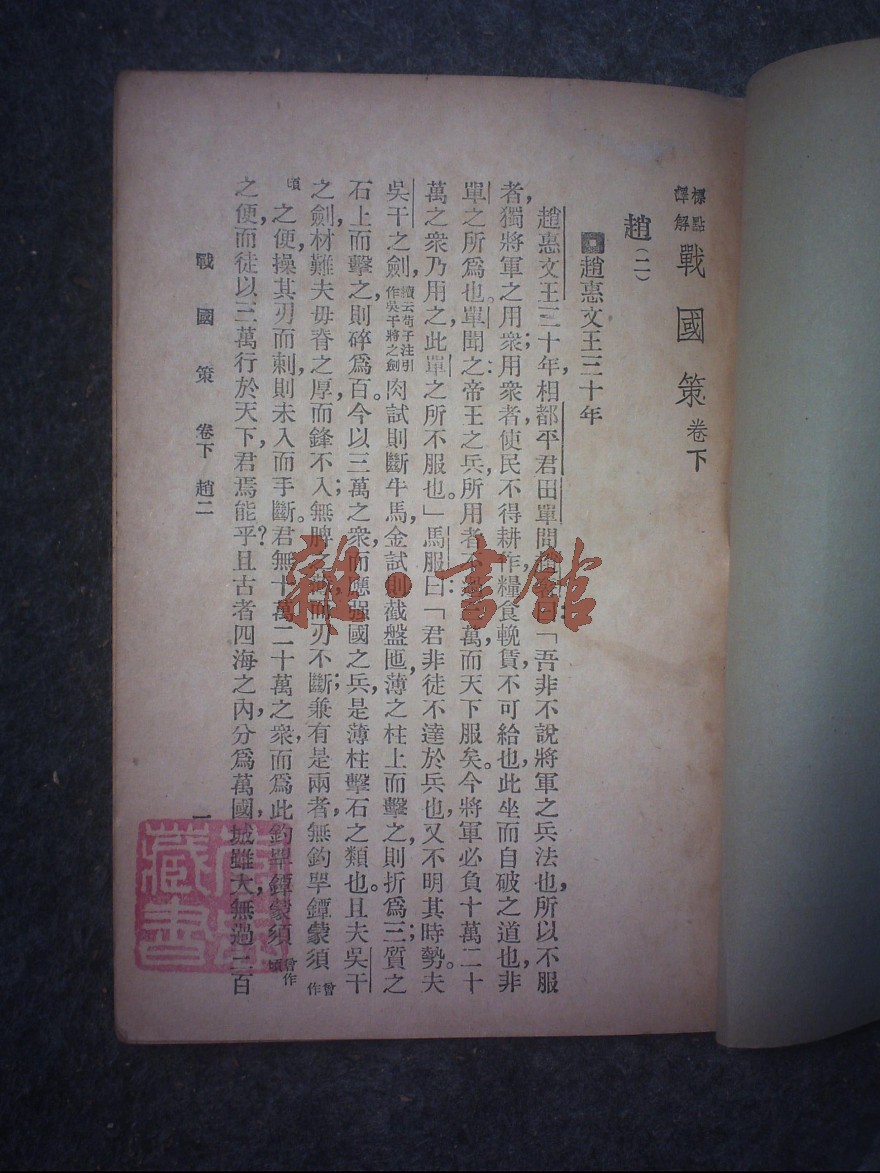 標點
譯解
戰國策卷下
趙(二)
趙惠文王三十年
趙惠文王三十年,相都平君田單問「吾非不說將軍之兵法也,所以不服
者,獨將軍之用衆;用衆者,使民不得耕作,糧食輓賃,不可給也,此坐而自破之道也,非
單之所爲也。單聞之:帝王之兵,所用者不萬,而天下服矣。今將軍必負十萬二十
萬之衆乃用之,此單之所不服也。」馬服曰:「君非徒不達於兵也,又不明其時勢。夫
吳干之劍,續云荀子注引作吳干將之劍肉試則斷牛馬,金試則截盤匜,薄之柱上而擊之,則折爲三;質之
石上而擊之,則碎爲百。今以三萬之衆,而應强國之兵,是薄柱擊石之類也。且夫吳干
之劍,材難夫毋脊之厚,而鋒不入;無脾之而刃不斷;兼有是兩者,無釣罕鐔蒙須曾作
頃之便,操其刃而刺,則未入而手斷。君無十萬二十萬之衆,而爲此釣罕鐔蒙須曾作頃
之便,而徒以三萬行於天下,君焉能乎?且古者四海之內,分爲萬國,城雖大,無過三百
戰國策 卷下 趙二 一
雜·書館
藏書